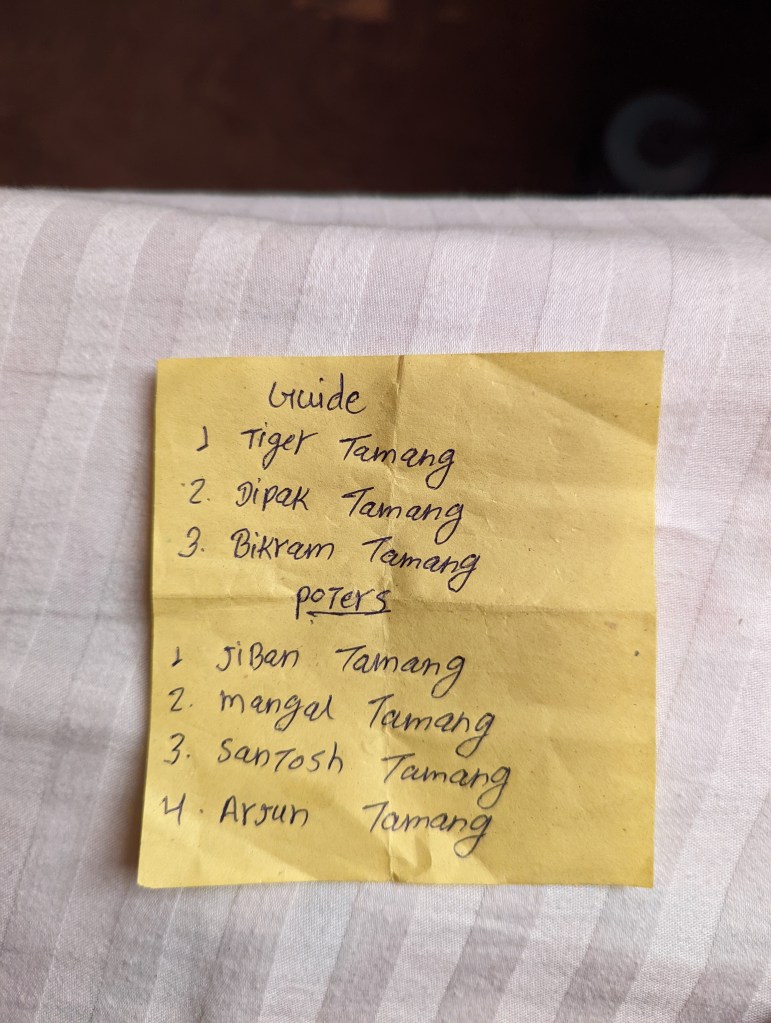 Guide
1 Tiger Tamang
2. Dipak Tamang
3. Bikram Tamang
poters
1 JiBan Tamang
2. mangal Tamang
3. Santosh Tamang
4. Arjun Tamang